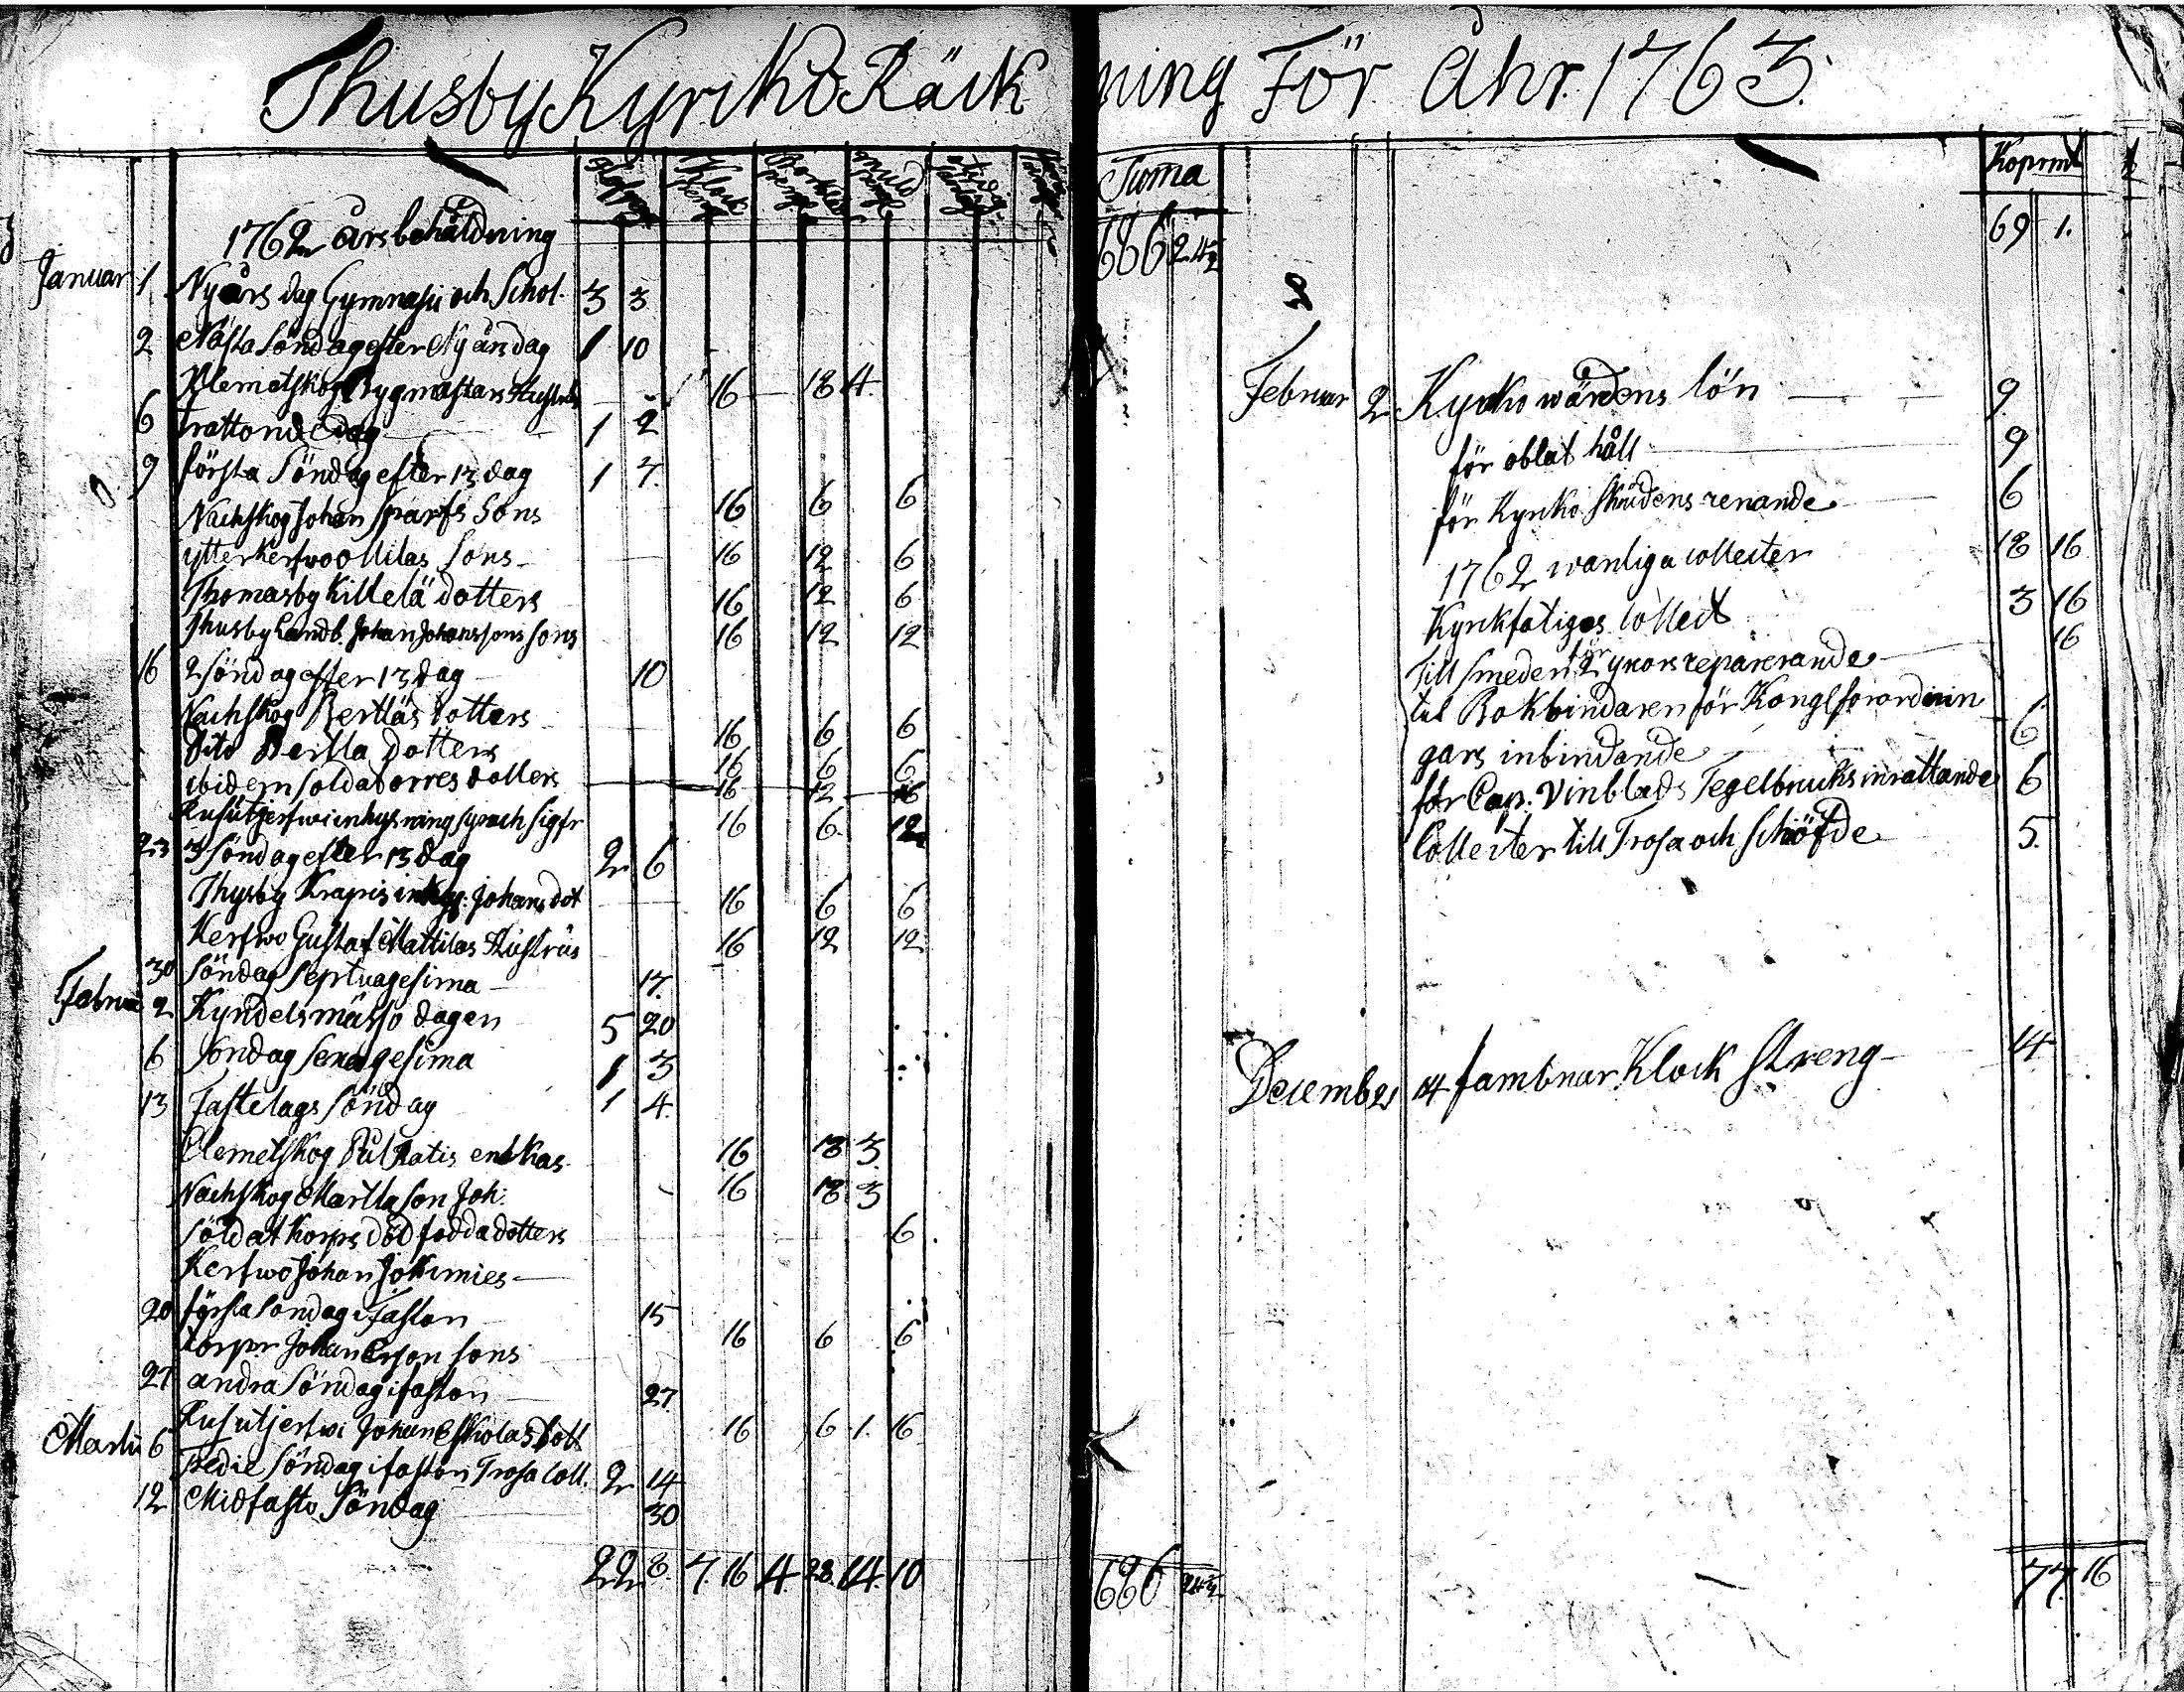 Thusby Kyrko Räck
ning För åhr 1763.
Klock peng
Suma
Koprmt
1762 års behåldning 666 24½ 69 1.
Januar 1 Nyårs dag Gymnasii och Schol. 3 3
2 Nästa Söndag efter Nyårsdag 1 10
Klemetskog Bygmästars Hustrus 16 18 4
6 Trattonde dag 1 2
9 första Söndag efter 13 dag 1 7.
Nachskog Johan Sparfs Sons 16 6 6
ytterkerfwo Ollilas Sons 16 12 6
Thomasby Killelä dotters 16 12 6
Thusby Landb. Johan Johanssons Sons 16 12 12
16 2 Söndag efter 13 dag 10
Nachskog Bertläs dotters 16 6 6
Dito Bertla Dotters 16 6 6
ibidem soldat orres dotters 16 12 16
Rusutjerfwi inhysning Sigfr 16 6. 12
23 3 Söndag efter 13 dag 2 6
Thusby Krapis Johans dot 16 6 6
Kerfwo Gustaf Mattilas Hustrus 16 12 12
30 Söndag Septuagesima 17.
Februa 2 Kyndelsmässo dagen 5 20
6 Söndag Sexagesima 1 3
13 Fastelags Söndag 1 4
Clemetskog enkas 16 18 3
Nachskog Martla Son Joh. 16 18 3
Söldat Korps död födda dotters 6
Kerfwo Johan Jokimies
20 första Söndag i Faston 15
torpr Johan Ersson Sons 16 6 6
27 andra Söndag i faston 27.
Rusutjerfwi Johan Eskolas Dott 16 6 1. 16
Martii 6 Tredie Söndag i faston Trosa Coll. 2 14
12 Midfasto Söndag 30
22 8. 7. 16 4 28. 14. 10
666 24½
Februar 2 Kyrko wärdens lön 9
för oblat håll 9
för Kyrko skrudens renande 6
1762 wanliga collecter 18 16
Kyrkfatiges Collect 3 16
Till Smeden för 2 ynors reparerande 16
til Bokbindaren för Kongl forordnin
gars inbindande 6
för Cap. Vinblads Tegelbruks inrattande 6
Collecter till Trosa och Schöfde 5.
December 14 fambnar Klock Streng 14
77. 16